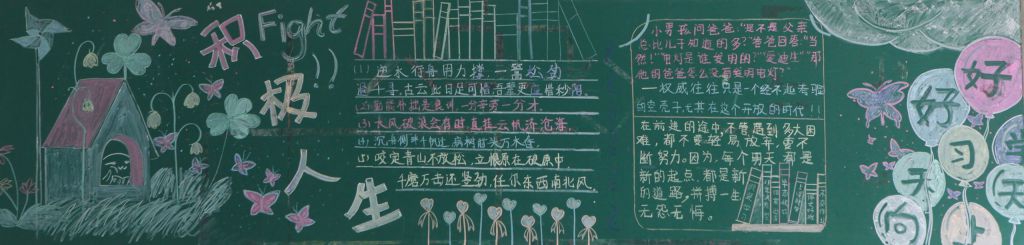 积极人生
Fight!!
(1) 逆水行舟用力撑,一篙松劲
退千寻;古云此日足可惜,吾辈更应惜秒阴。
(2) 勤能补拙是良训,一分辛劳一分才。
(3) 长风破浪会有时,直挂云帆济沧海。
(4) 沉舟侧畔千帆过,病树前头万木春。
(5) 咬定青山不放松,立根原在破原中
千磨万击还坚劲,任尔东西南北风。
小男孩问爸爸:"是不是父亲
总比儿子知道的多?"爸爸回答:"当
然!""电灯是谁发明的?""爱迪生""那
他的爸爸怎么没有发明电灯?"
—权威往往只是一个经不起考验
的空壳子尤其在这个开放的时代!!
在前进的途中,不管遇到多大困
难,都不要轻易放弃,要不
断努力。因为,每个明天都是
新的起点,都是新
的道路,拼搏一生
无怨无悔。
好好学习
天天向上